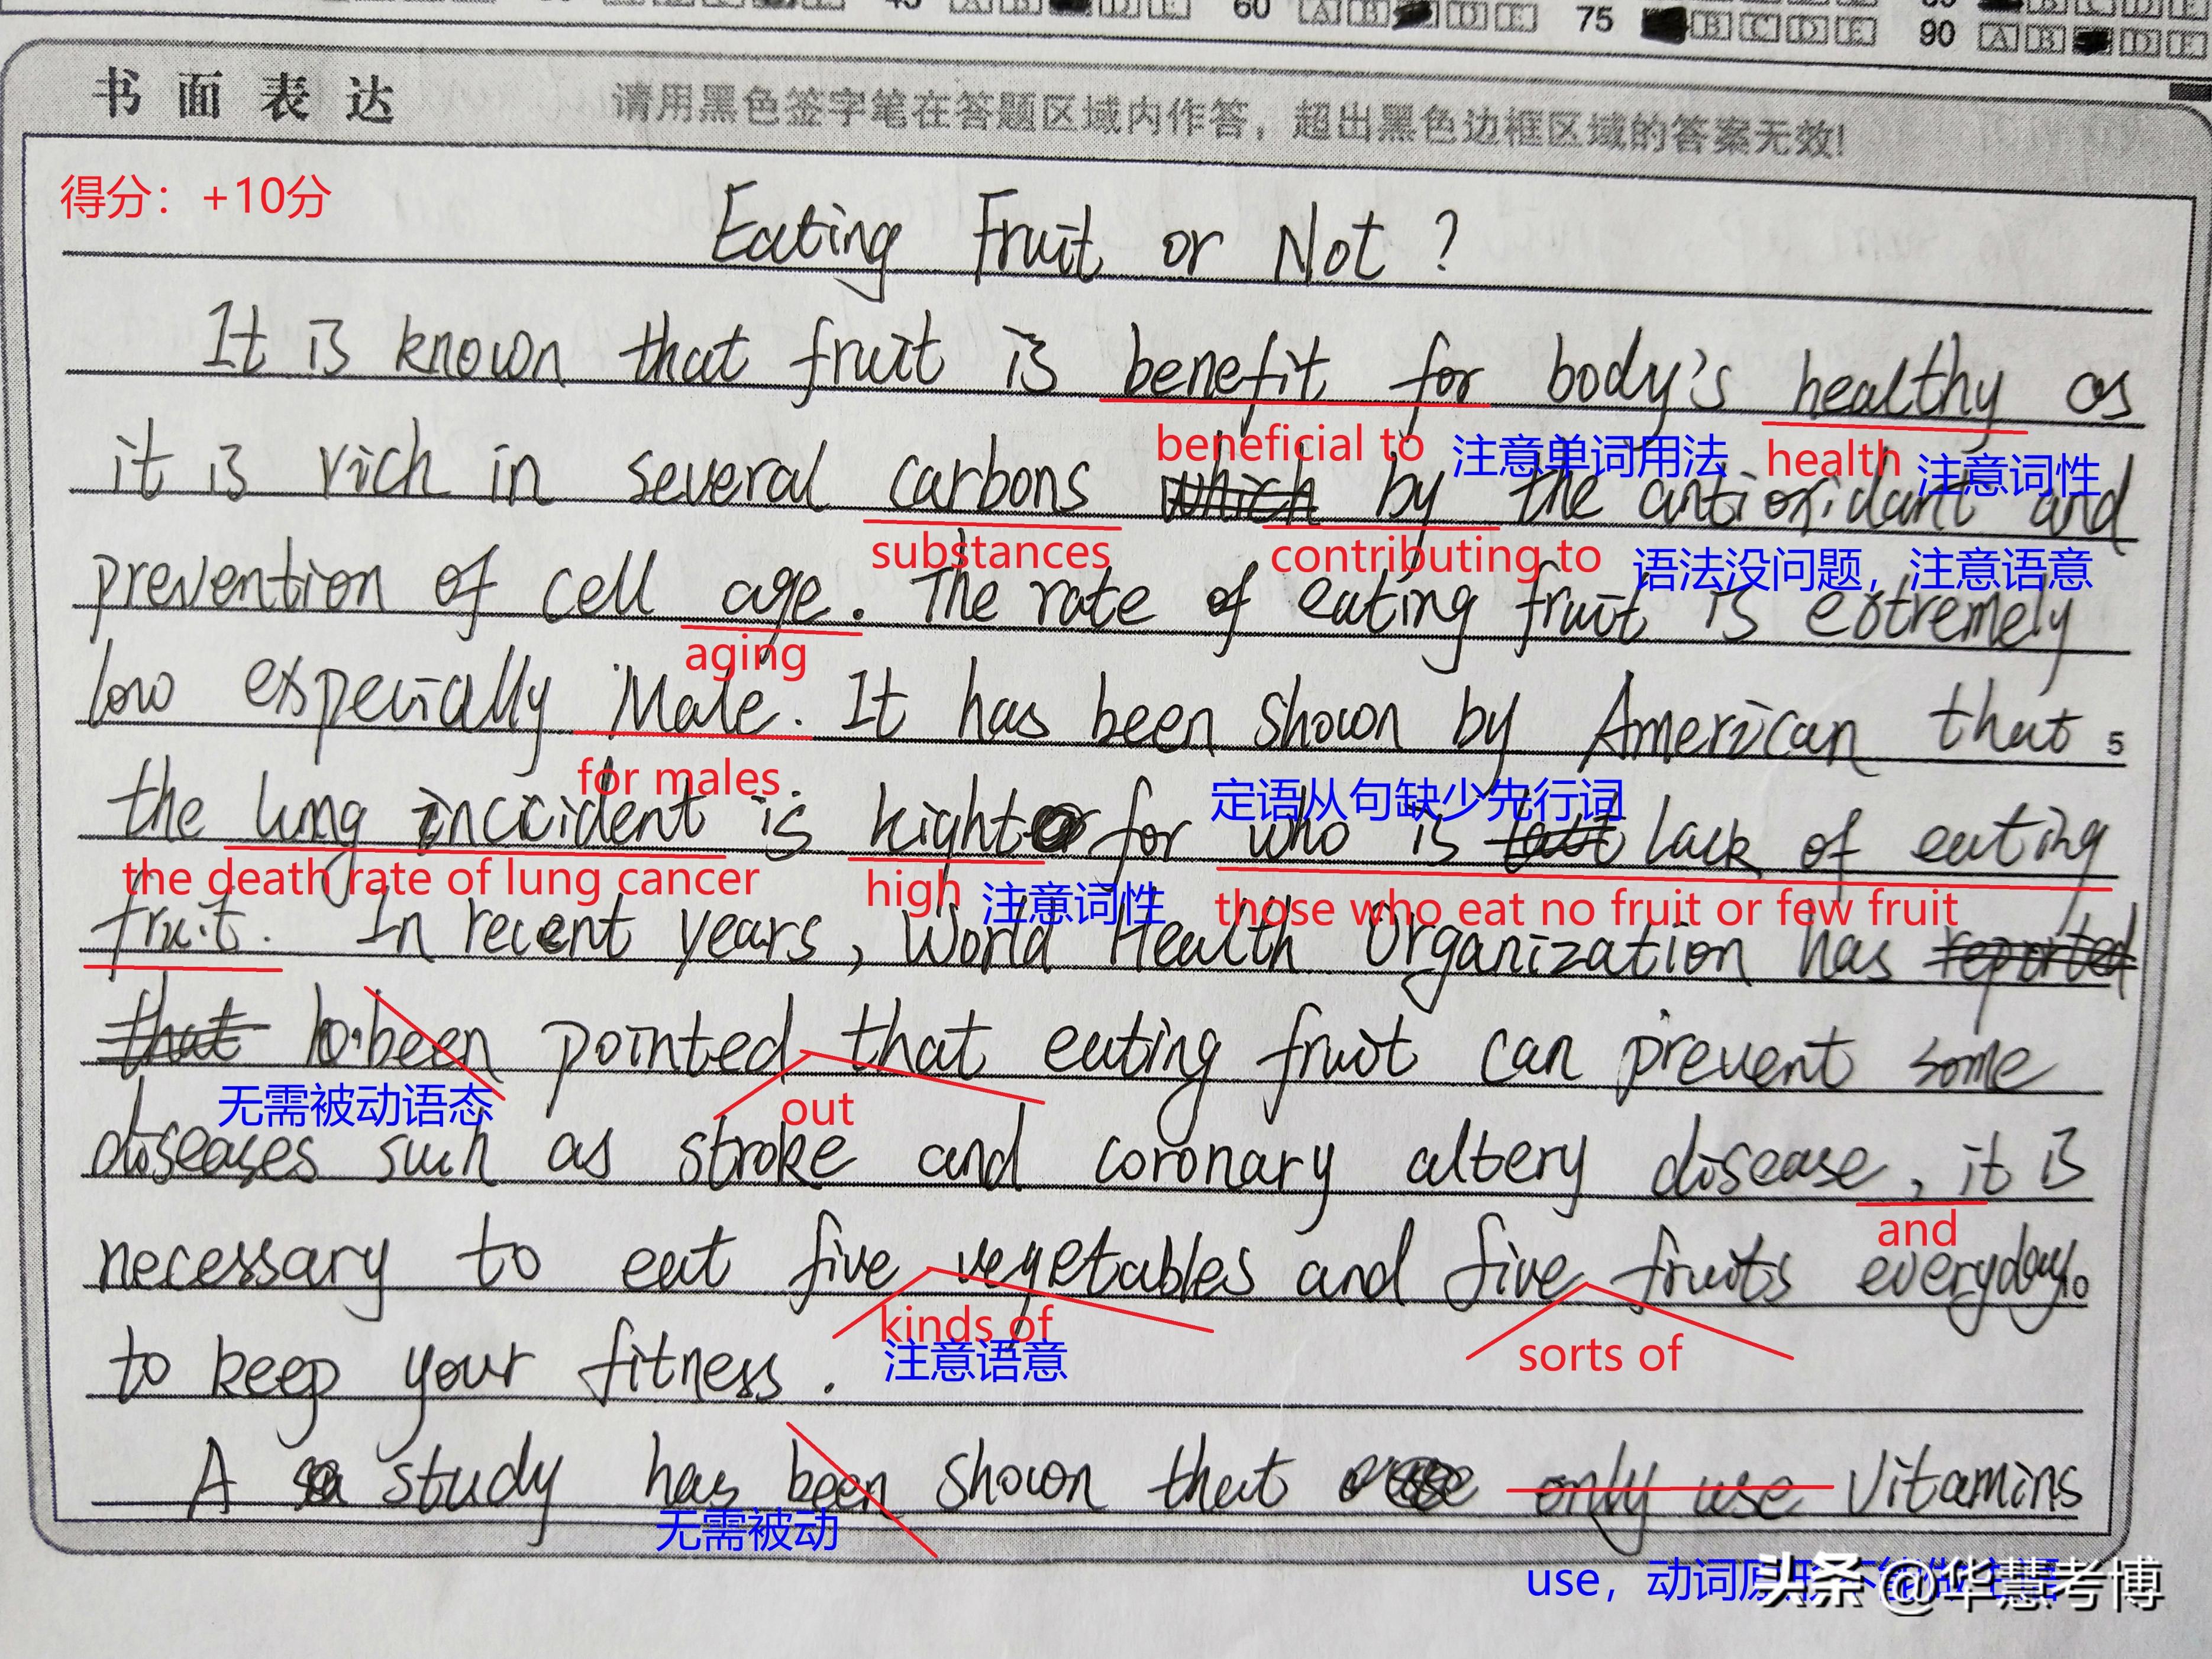 45 A B D E 60 A B D E 75 B C D E 90 A B D E
书面表达 请用黑色签字笔在答题区域内作答，超出黑色边框区域的答案无效!
得分：+10分
Eating Fruit or Not ?
It is known that fruit is benefit for body's healthy as
beneficial to 注意单词用法 health 注意词性
it is rich in several carbons which by the antioxidant and
substances contributing to 语法没问题，注意语意
prevention of cell age. The rate of eating fruit is extremely
aging
low expecially Male. It has been shown by American that 5
for males 定语从句缺少先行词
the lung incicident is hight for who is lack of eating
the death rate of lung cancer high 注意词性 those who eat no fruit or few fruit
fruit. In recent years, World Health Organization has reported
that been pointed that eating fruit can prevent some
无需被动语态 out
diseases such as stroke and coronary altery disease, it is
and
necessary to eat five vegetables and five fruits everyday 10
kinds of sorts of
注意语意
to keep your fitness.
A study has been shown that only use vitamins
无需被动
use，动词原
头条 @华慧考博